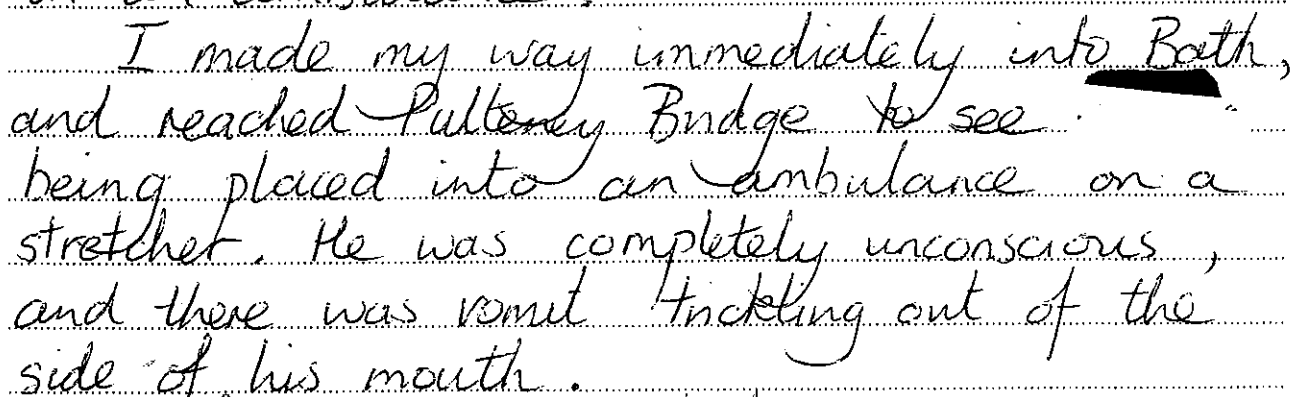 I made my way immediately into Bath,
and reached Pulteney Bridge to see
being placed into an ambulance on a
stretcher. He was completely unconscious,
and there was vomit trickling out of the
side of his mouth.